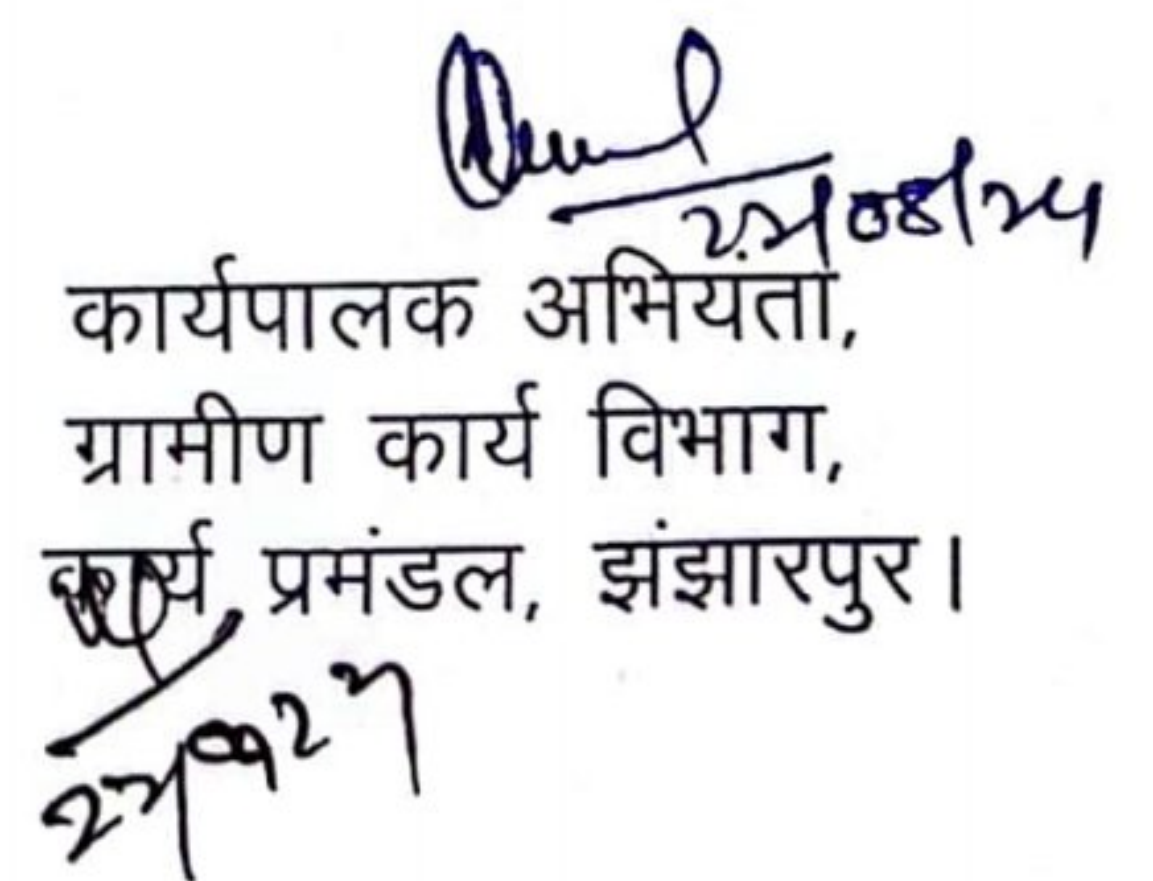 कार्यपालक अभियंता,
ग्रामीण कार्य विभाग,
कार्य प्रमंडल, झंझारपुर।